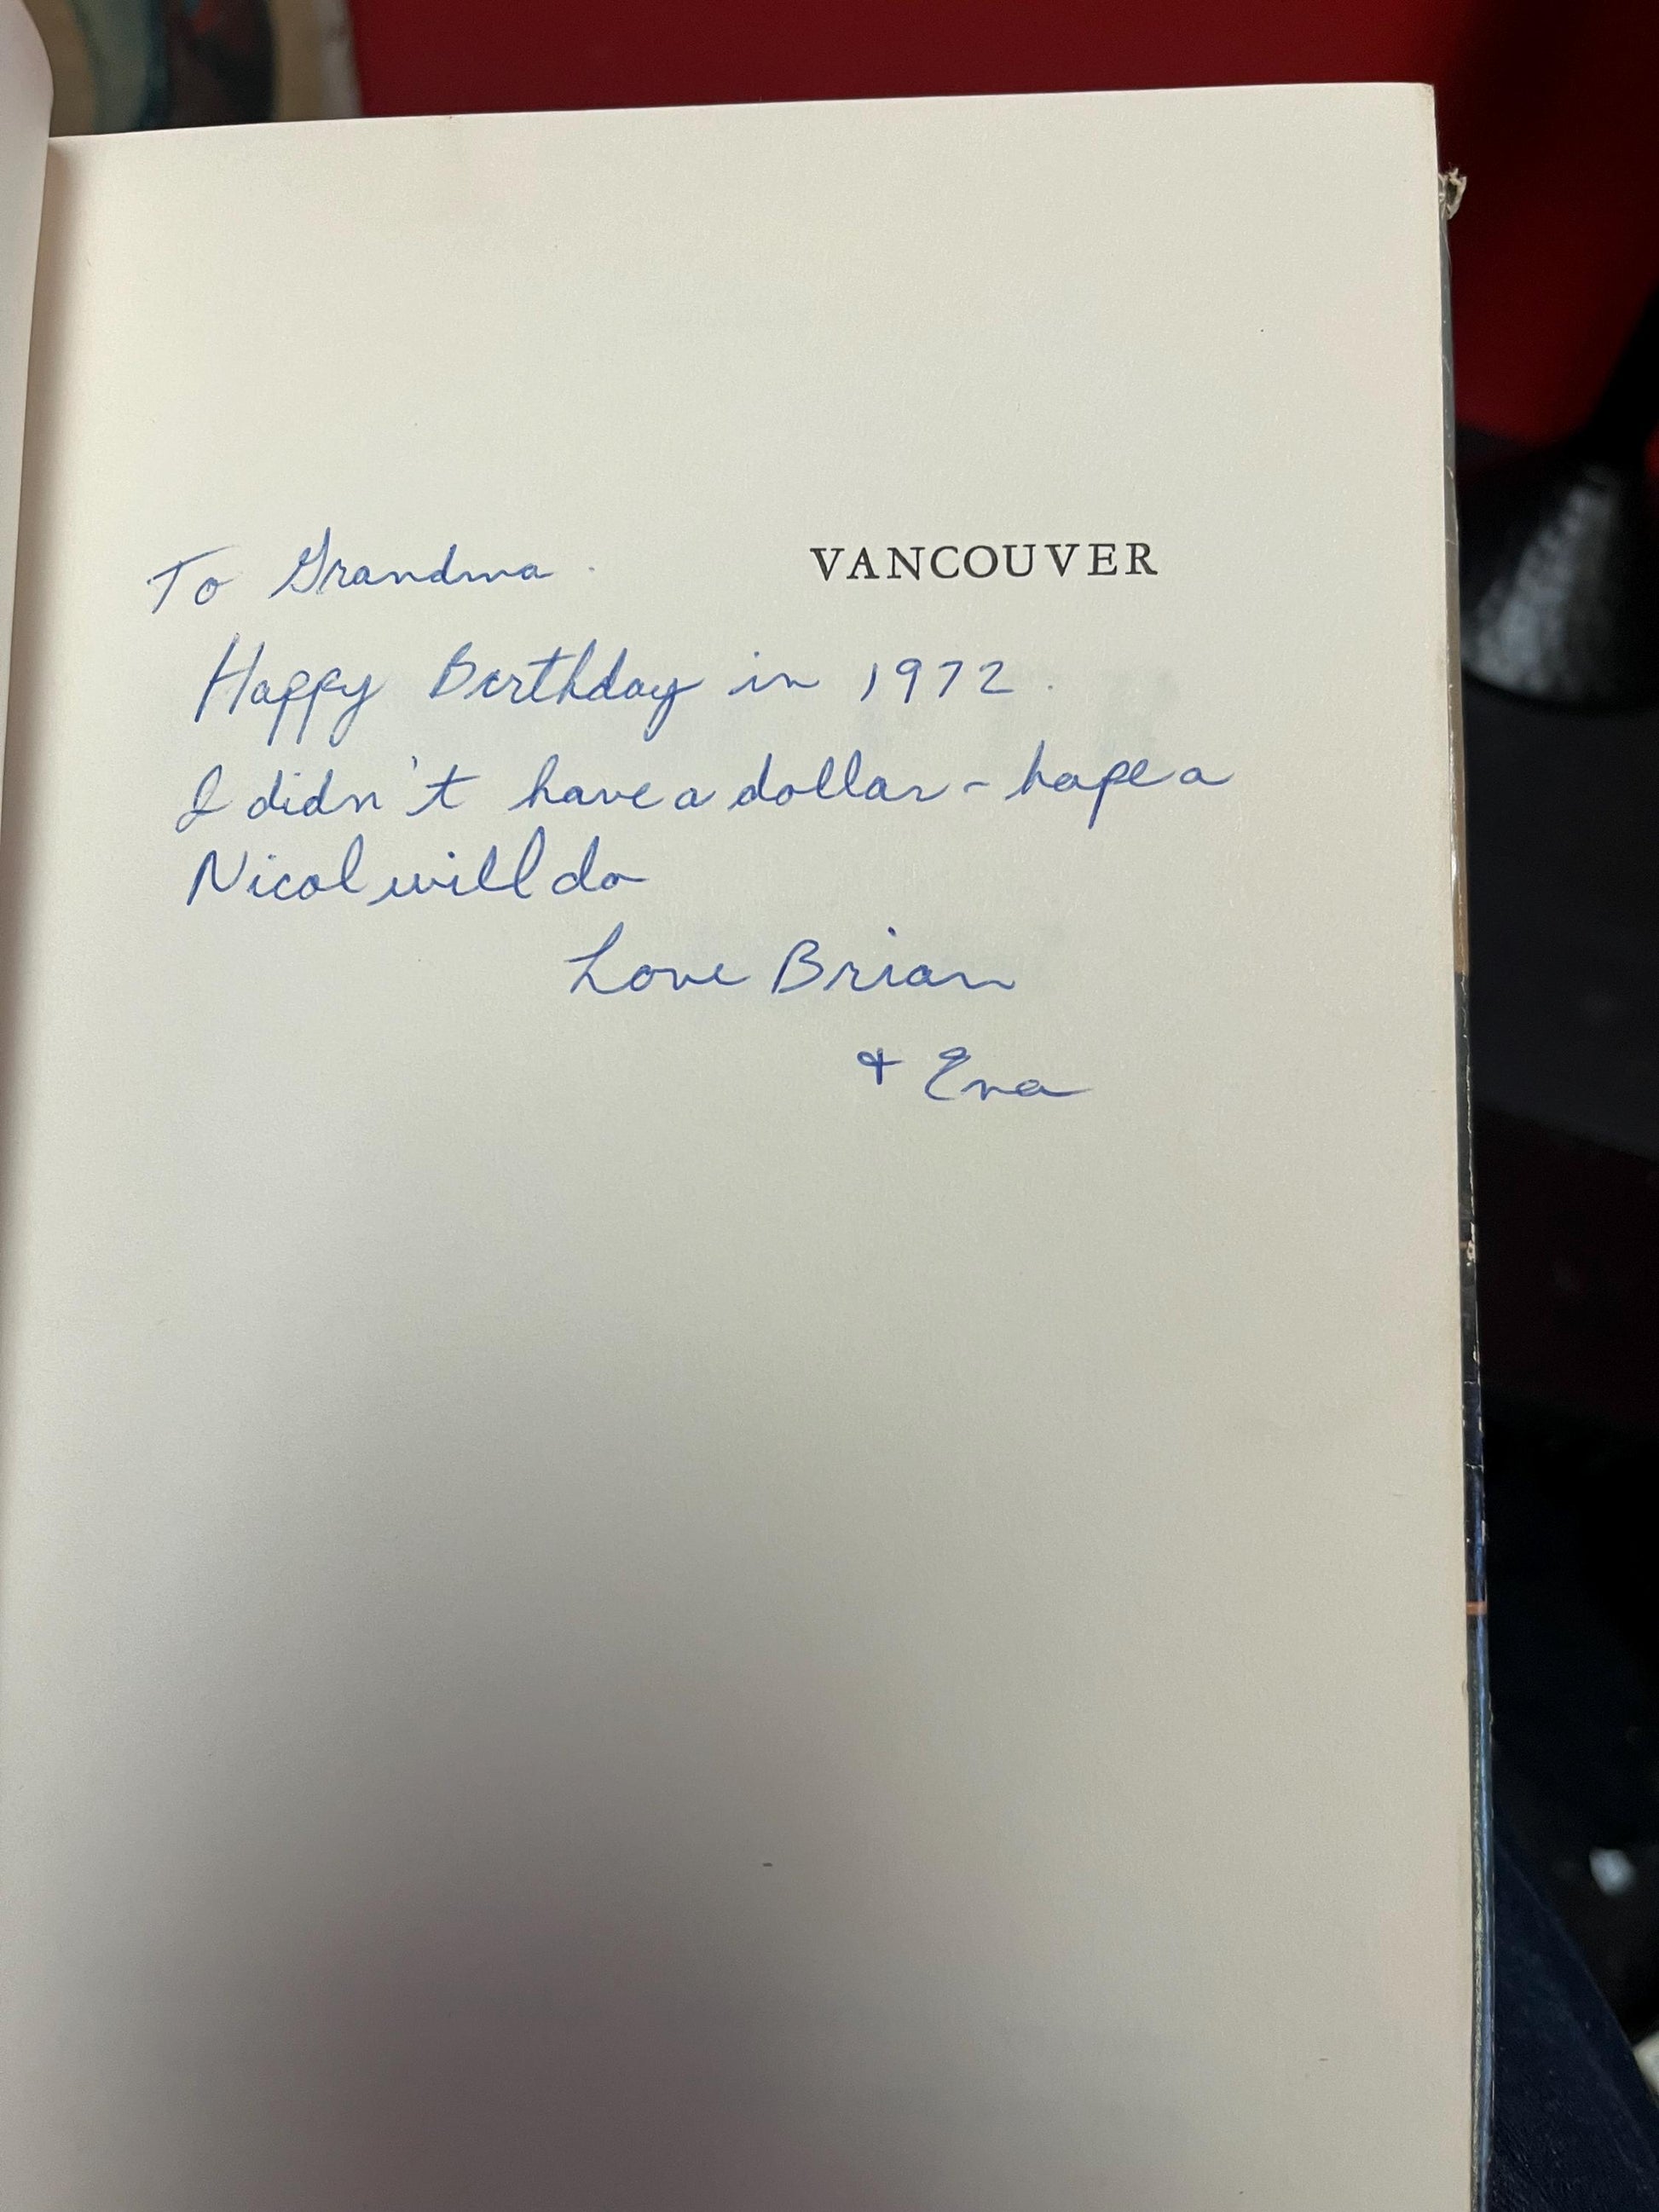 To Grandma
VANCOUVER
Happy Birthday in 1972.
I didn't have a dollar - hope a
Nicol will do
Love Brian
+ Eva